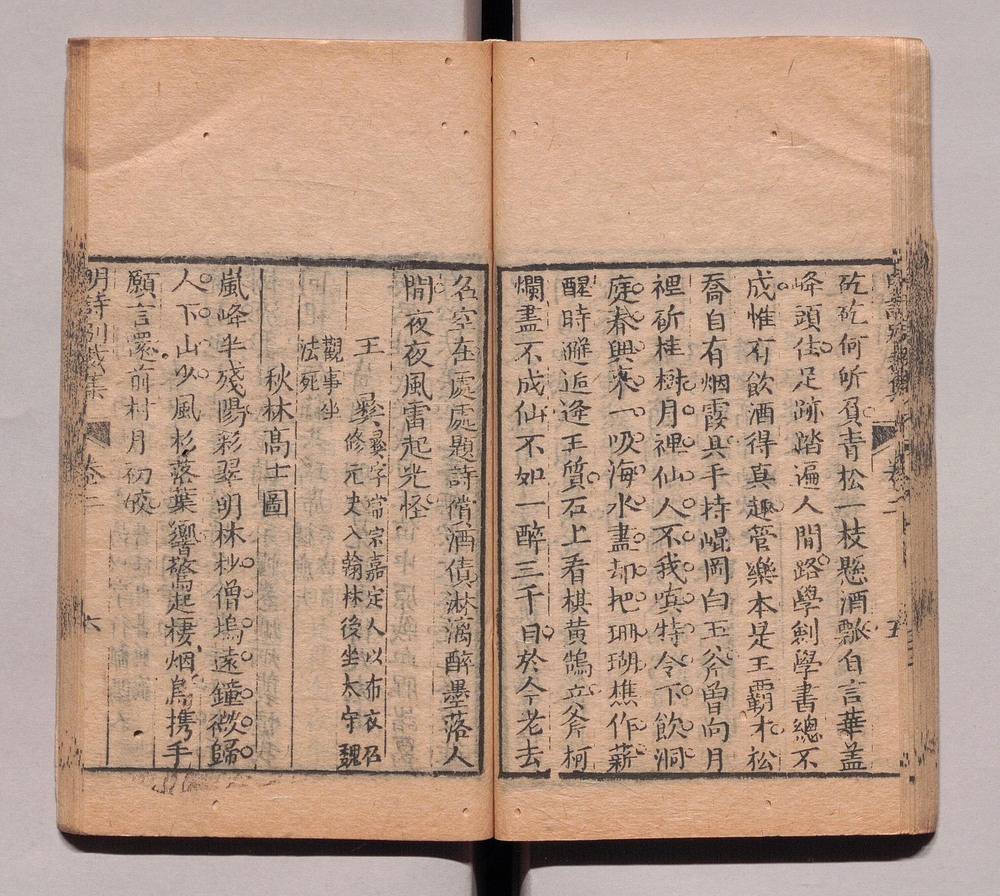 矻矻何所負青松一枝懸酒瓢自言華蓋
峰頭住足跡踏遍人間路學劍學書總不
成惟有飲酒得真趣管樂本是王霸才松
喬自有烟霞具手持崐岡白玉斧曾向月
裡斫桂樹月裡仙人不我嗔特令下飲洞
庭春興來一吸海水盡却把珊瑚樵作薪
醒時邂逅逢王質石上看棋黃鵠立斧柯
爛盡不成仙不如一醉三千日於今老去
名空在處處題詩償酒債淋漓醉墨落人
間夜夜風雷起光怪
王彞彞字常宗嘉定人以布衣召
修元史入翰林後坐太守魏
觀事坐
法死
秋林高士圖
嵐峰半殘陽彩翠明林杪僧塢遠鐘微歸
人下山少風杉落葉響驚起棲烟鳥携手
願言還前村月初皎
明詩別裁集 卷二 六